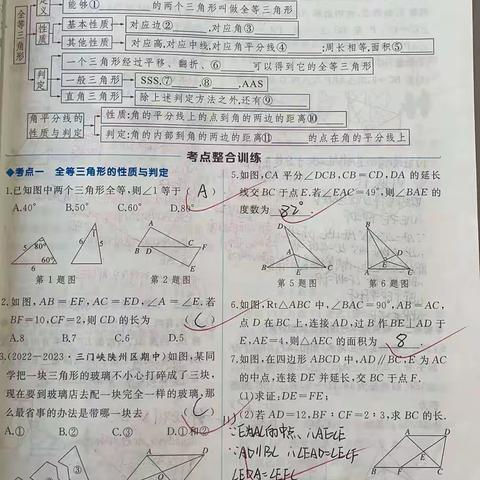 全等三角形
定义
能够① 的两个三角形叫做全等三角形
性质
基本性质 对应边② ,对应角③
其他性质 对应高,对应中线,对应角平分线④ ;周长相等,面积⑤
判定
一个三角形经过平移、翻折、⑥ 可以得到它的全等三角形
一般三角形 SSS,⑦ ,⑧ ,AAS
直角三角形 除上述判定方法之外,还有⑨
角平分线的性质与判定
性质:角的平分线上的点到角的两边的距离⑩
判定:角的内部到角的两边的距离⑪ 的点在角的平分线上
考点整合训练
◆考点一 全等三角形的性质与判定
1.已知图中两个三角形全等,则∠1等于( A )
A.40° B.50° C.60° D.80°
5 80° 6 60°
6 1 5
A B D C F E
第1题图 第2题图
2.如图,AB=EF,AC=ED,∠A=∠E.若
BF=10,CF=2,则CD的长为 ( C )
A.8 B.7 C.6 D.5
3.(2022-2023·三门峡陕州区期中)如图,某同
学把一块三角形的玻璃不小心打碎成了三块,
现在要到玻璃店去配一块完全一样的玻璃,那
么最省事的办法是带哪一块去 ( C )
A.① B.② C.③ D.①和②
③
A D
O
5.如图,CA平分∠DCB,CB=CD,DA的延长
线交BC于点E.若∠EAC=49°,则∠BAE的
度数为 82° .
D A B E C
B D A E C
第5题图 第6题图
6.如图,Rt△ABC中,∠BAC=90°,AB=AC,
点D在BC上,连接AD,过B作BE⊥AD于
E,AE=4,则△AEC的面积为 8 .
7.如图,在四边形ABCD中,AD∥BC,E为AC
的中点,连接DE并延长,交BC于点F.
(1)求证:DE=FE;
(2)若AD=12,BF:CF=2:3,求BC的长.
(1)
∵E为AC的中点,∴AE=CE
∵AD∥BC ∴∠EAD=∠ECF
∠EDA=∠EFC
A D E B F C